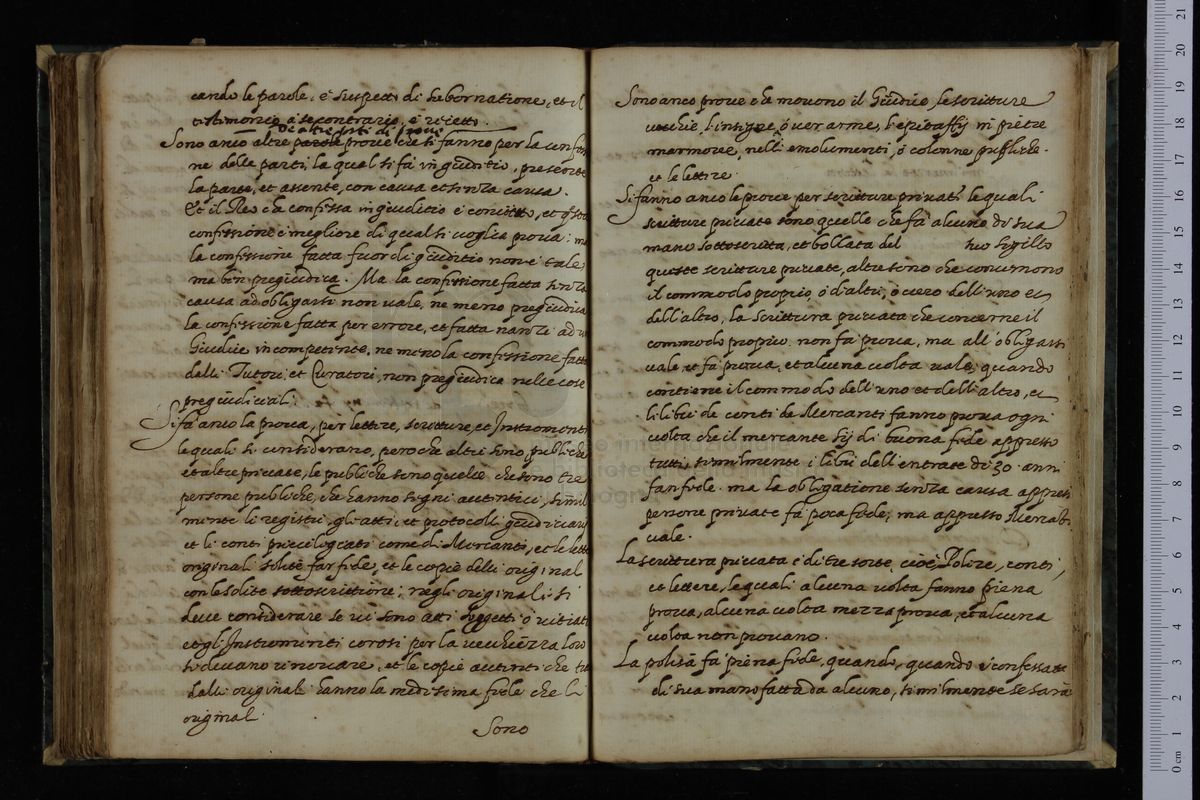 cando le parole, è suspetto di subornatione, et il
testimonio à se contrario, è reietto.
De altre sorti di prove
Sono anco altre parole prove che si fanno per la confessio
ne delle parti, la qual si fà in giuditio, presente
la parte, et assente, con causa et senza causa.
Et il Reo che confessa in giuditio è convitto, et questa
confessione è megliore di qual si voglia prova: ma
la confessione fatta fuor di giuditio non è tale
ma ben pregiudica. Ma la confessione fatta senza
causa ad obligarsi non vale, ne meno pregiudica
la confessione fatta per errore, et fatta nanzi ad un
Giudice incompetente, ne meno la confessione fatta
delli Tutori, et Curatori, non pregiudica nelle cose
pregiudiciali.
Si fà anco la prova, per lettere, scritture, et Instromenti
le quali si considerano, però che altri sono publiche
et altre private, le publiche sono quelle che sono tre
persone publiche, che hanno segni autentici, simil
mente li registri, gli atti, et protocolli giudiciarij
et li conti privilegiati come di Mercanti, et le lettere
original solite far fede, et le copie delli original
con le solite sottoscrittione; negli originali si
deve considerare se vi sono atti soggetti ò vitiati
et gl'Instromenti corosi per la vecchiezza loro
si devano rinovare, et le copie autentiche tratte
dalli original hanno la medesima fede che li
original.
Sono
Sono anco prove che movono il Giudice, le scritture
vecchie, l'insigne, ò ver arme, l'epitaffij in pietre
marmoree, nelli emolumenti, ò colonne publiche.
et le lettere.
Si fanno anco le prove per scritture privati le quali
scritture private sono quelle che fà alcuno di sua
mano sottoscritta, et bollata del suo sigillo
queste scritture private, altre sono che concernono
il commodo proprio, ò d'altri, ò vero dell'uno et
dell'altro, la scrittura privata che concerne il
commodo proprio non fà prova, ma all'obligarsi
vale, et fà prova, et alcuna volta vale, quando
contiene il commodo dell'uno et dell'altro, et
li libri de conti de Mercanti fanno prova ogni
volta che il mercante sij di buona fede appresso
tutti, similmente i libri dell'entrate di 30. anni
fan fede. ma la obligatione senza causa appresso
persone private fà poca fede, ma appresso Mercanti
vale.
La scrittura privata è di tre sorte, cioè, Polize, conti,
et lettere, le quali alcuna volta fanno piena
prova, alcuna volta mezza prova, et alcuna
volta non provano.
La polisa fà piena fede, quando, quando è confessata
di sua mano fatta da alcuno, similmente se sarà